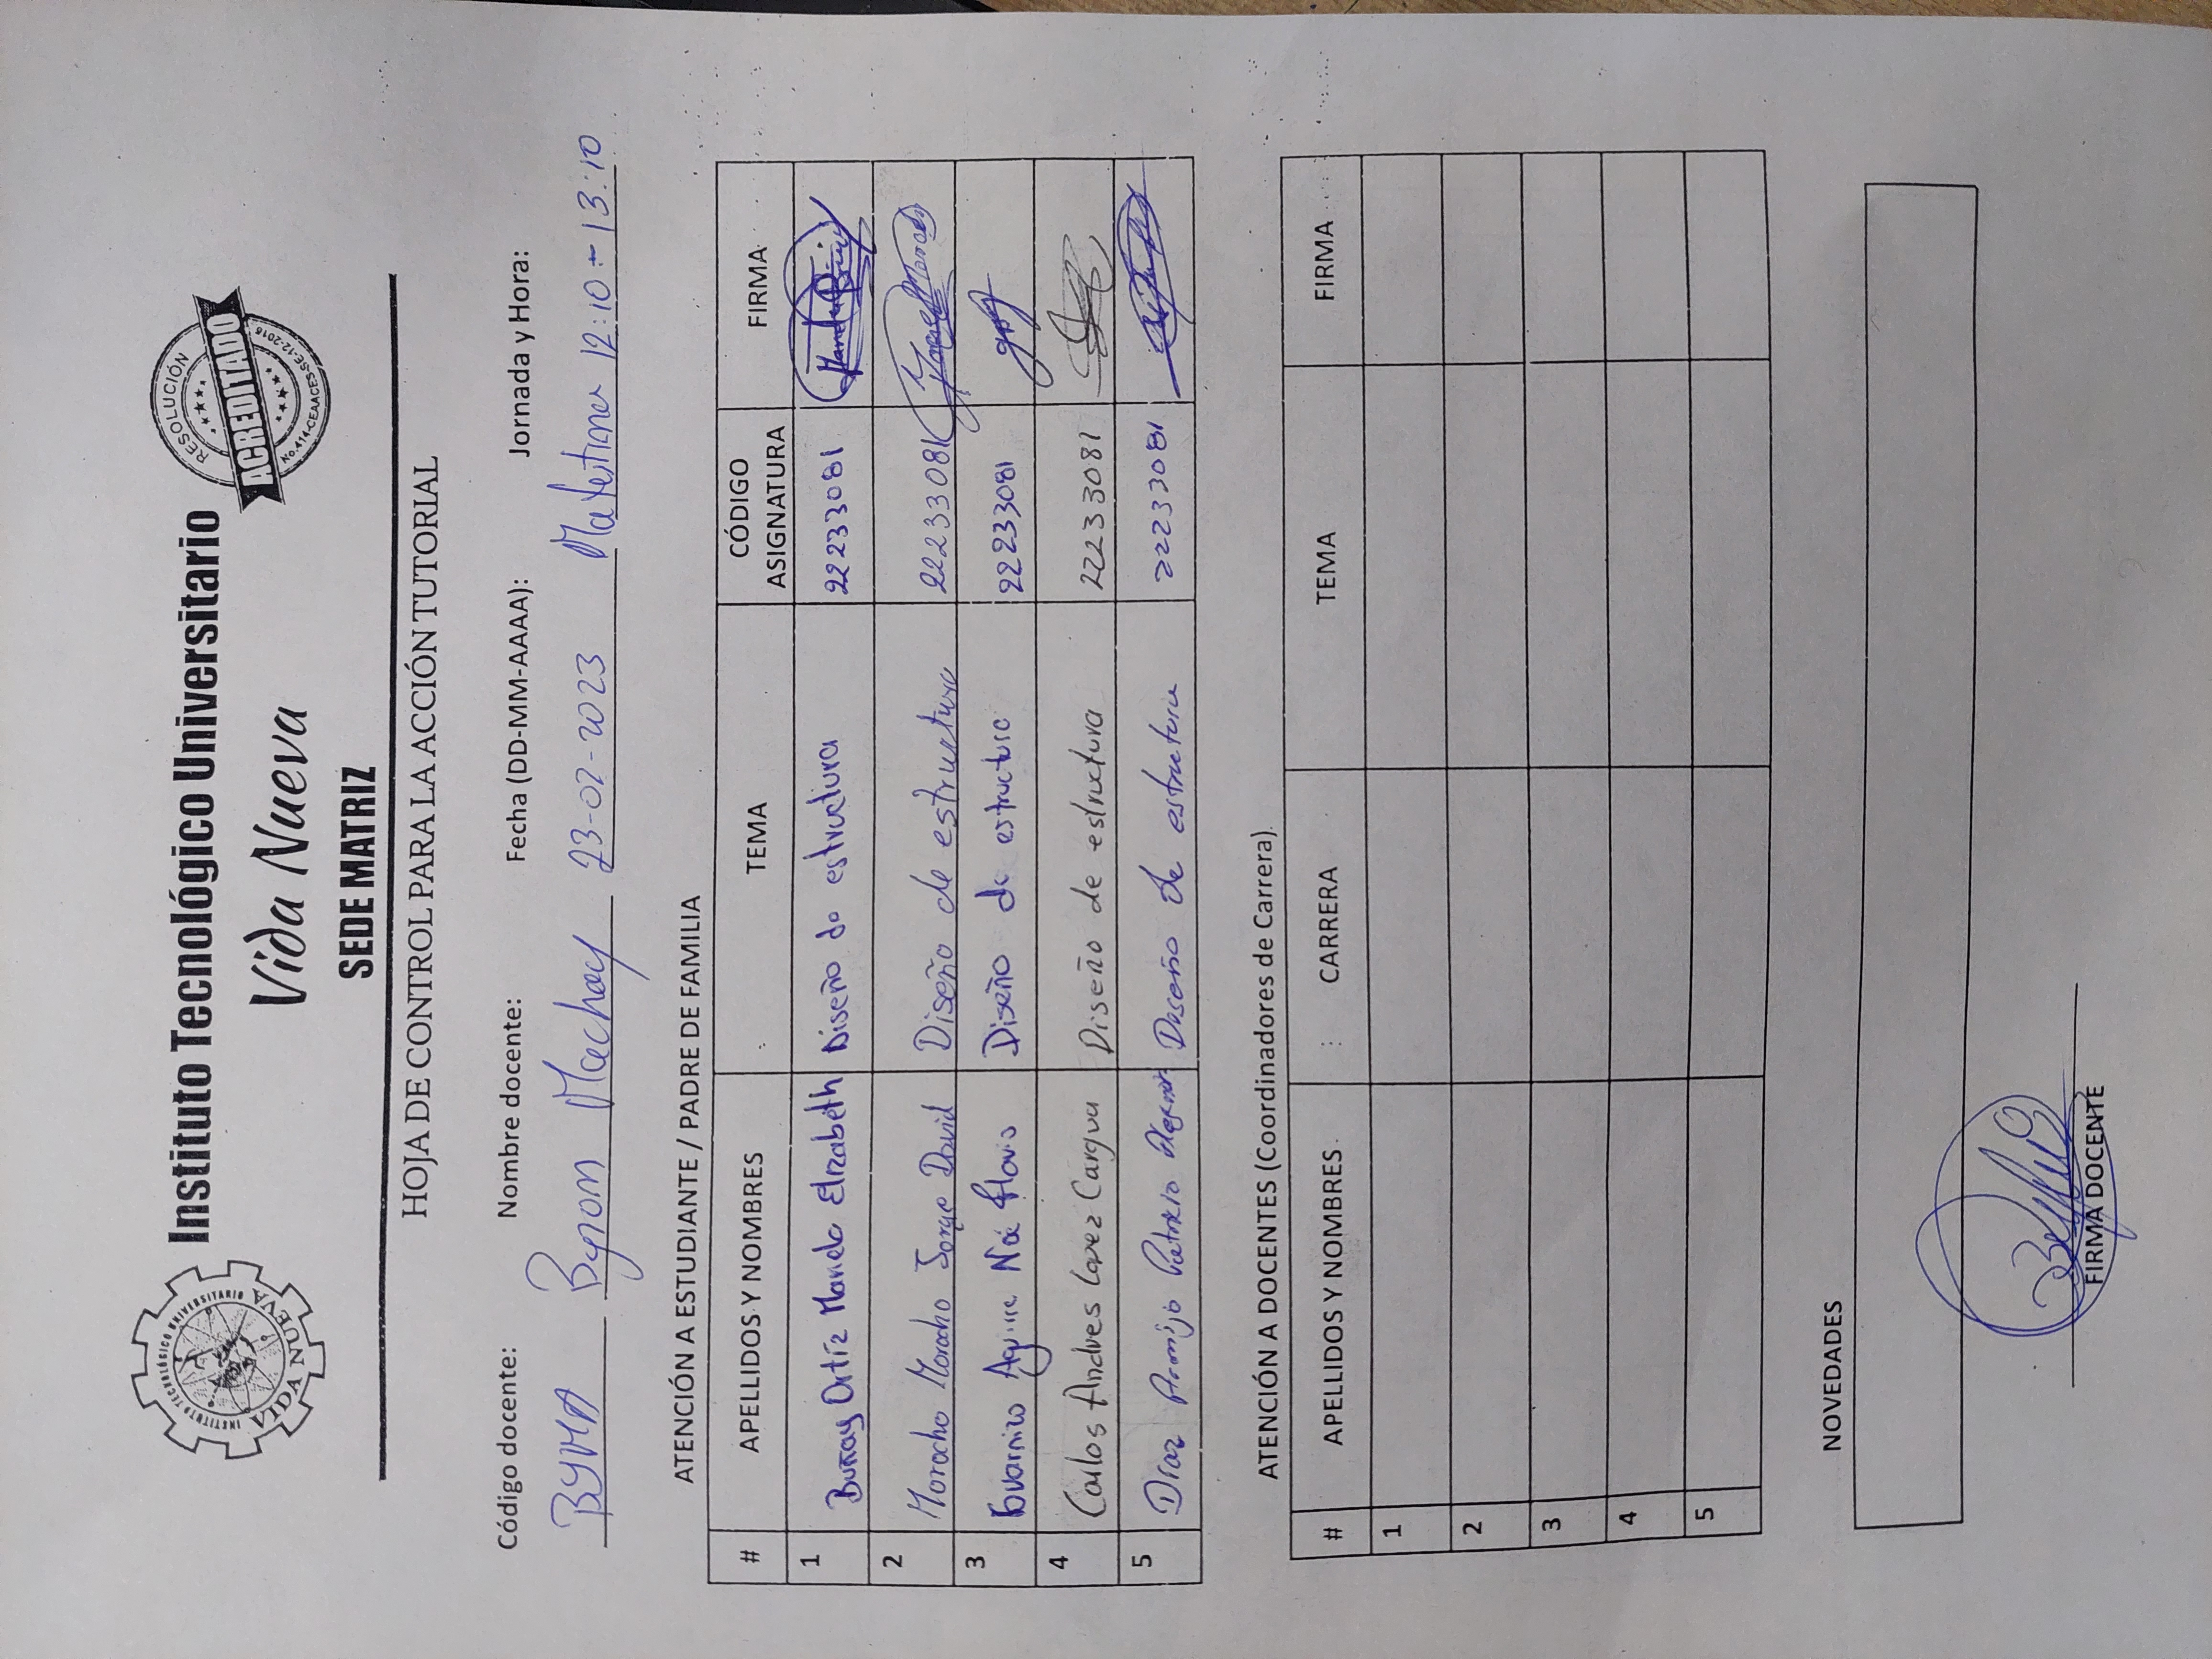 INSTITUTO TECNOLÓGICO UNIVERSITARIO
VIDA NUEVA
Instituto Tecnológico Universitario
Vida Nueva
SEDE MATRIZ
RESOLUCIÓN
ACREDITADO
No.414-CEAACES-SE-12-2016
HOJA DE CONTROL PARA LA ACCIÓN TUTORIAL
Código docente: Nombre docente: Fecha (DD-MM-AAAA): Jornada y Hora:
BYMA Byron Machay 23-02-2023 Matutina 12:10 - 13:10
ATENCIÓN A ESTUDIANTE / PADRE DE FAMILIA
# APELLIDOS Y NOMBRES TEMA CÓDIGO ASIGNATURA FIRMA
1 Ortíz Mariela Elizabeth Diseño de estructura 22233081
2 Morocho Morocho Jorge David Diseño de estructura 22233081
3 Guarnizo Aguirre Noé Flavio Diseño de estructura 22233081
4 Carlos Andres Lopez Cargua Diseño de estructura 22233081
5 Díaz Armijo Patricio Diseño de estructura 22233081
ATENCIÓN A DOCENTES (Coordinadores de Carrera)
# APELLIDOS Y NOMBRES CARRERA TEMA FIRMA
1
2
3
4
5
NOVEDADES
FIRMA DOCENTE